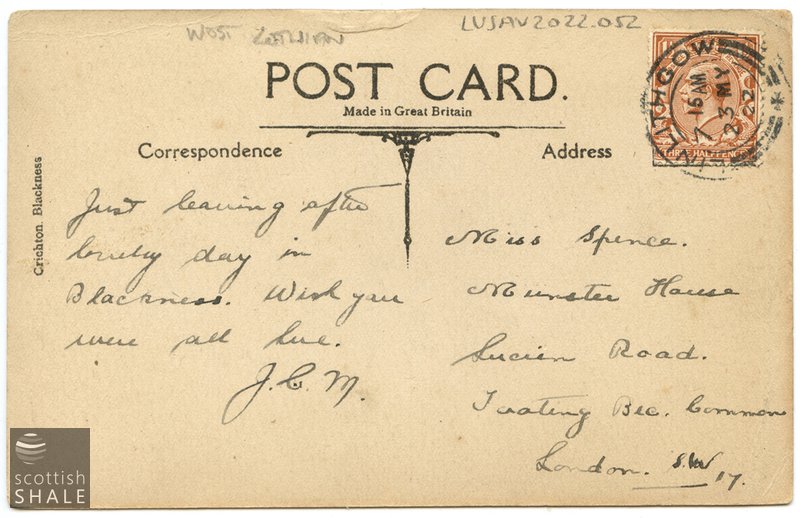 WEST LOTHIAN
LVSAV2022.052
POST CARD.
Made in Great Britain
LINLITHGOW
7 15 AM
23 MY
22
THREE HALFPENCE
Correspondence
Address
Crichton. Blackness
Just leaving after
lovely day in
Blackness. Wish you
were all here.
J.C.M.
Miss Spence.
Munster House
Lucien Road.
Tooting Bec. Common
London. S.W 17.
scottish
SHALE